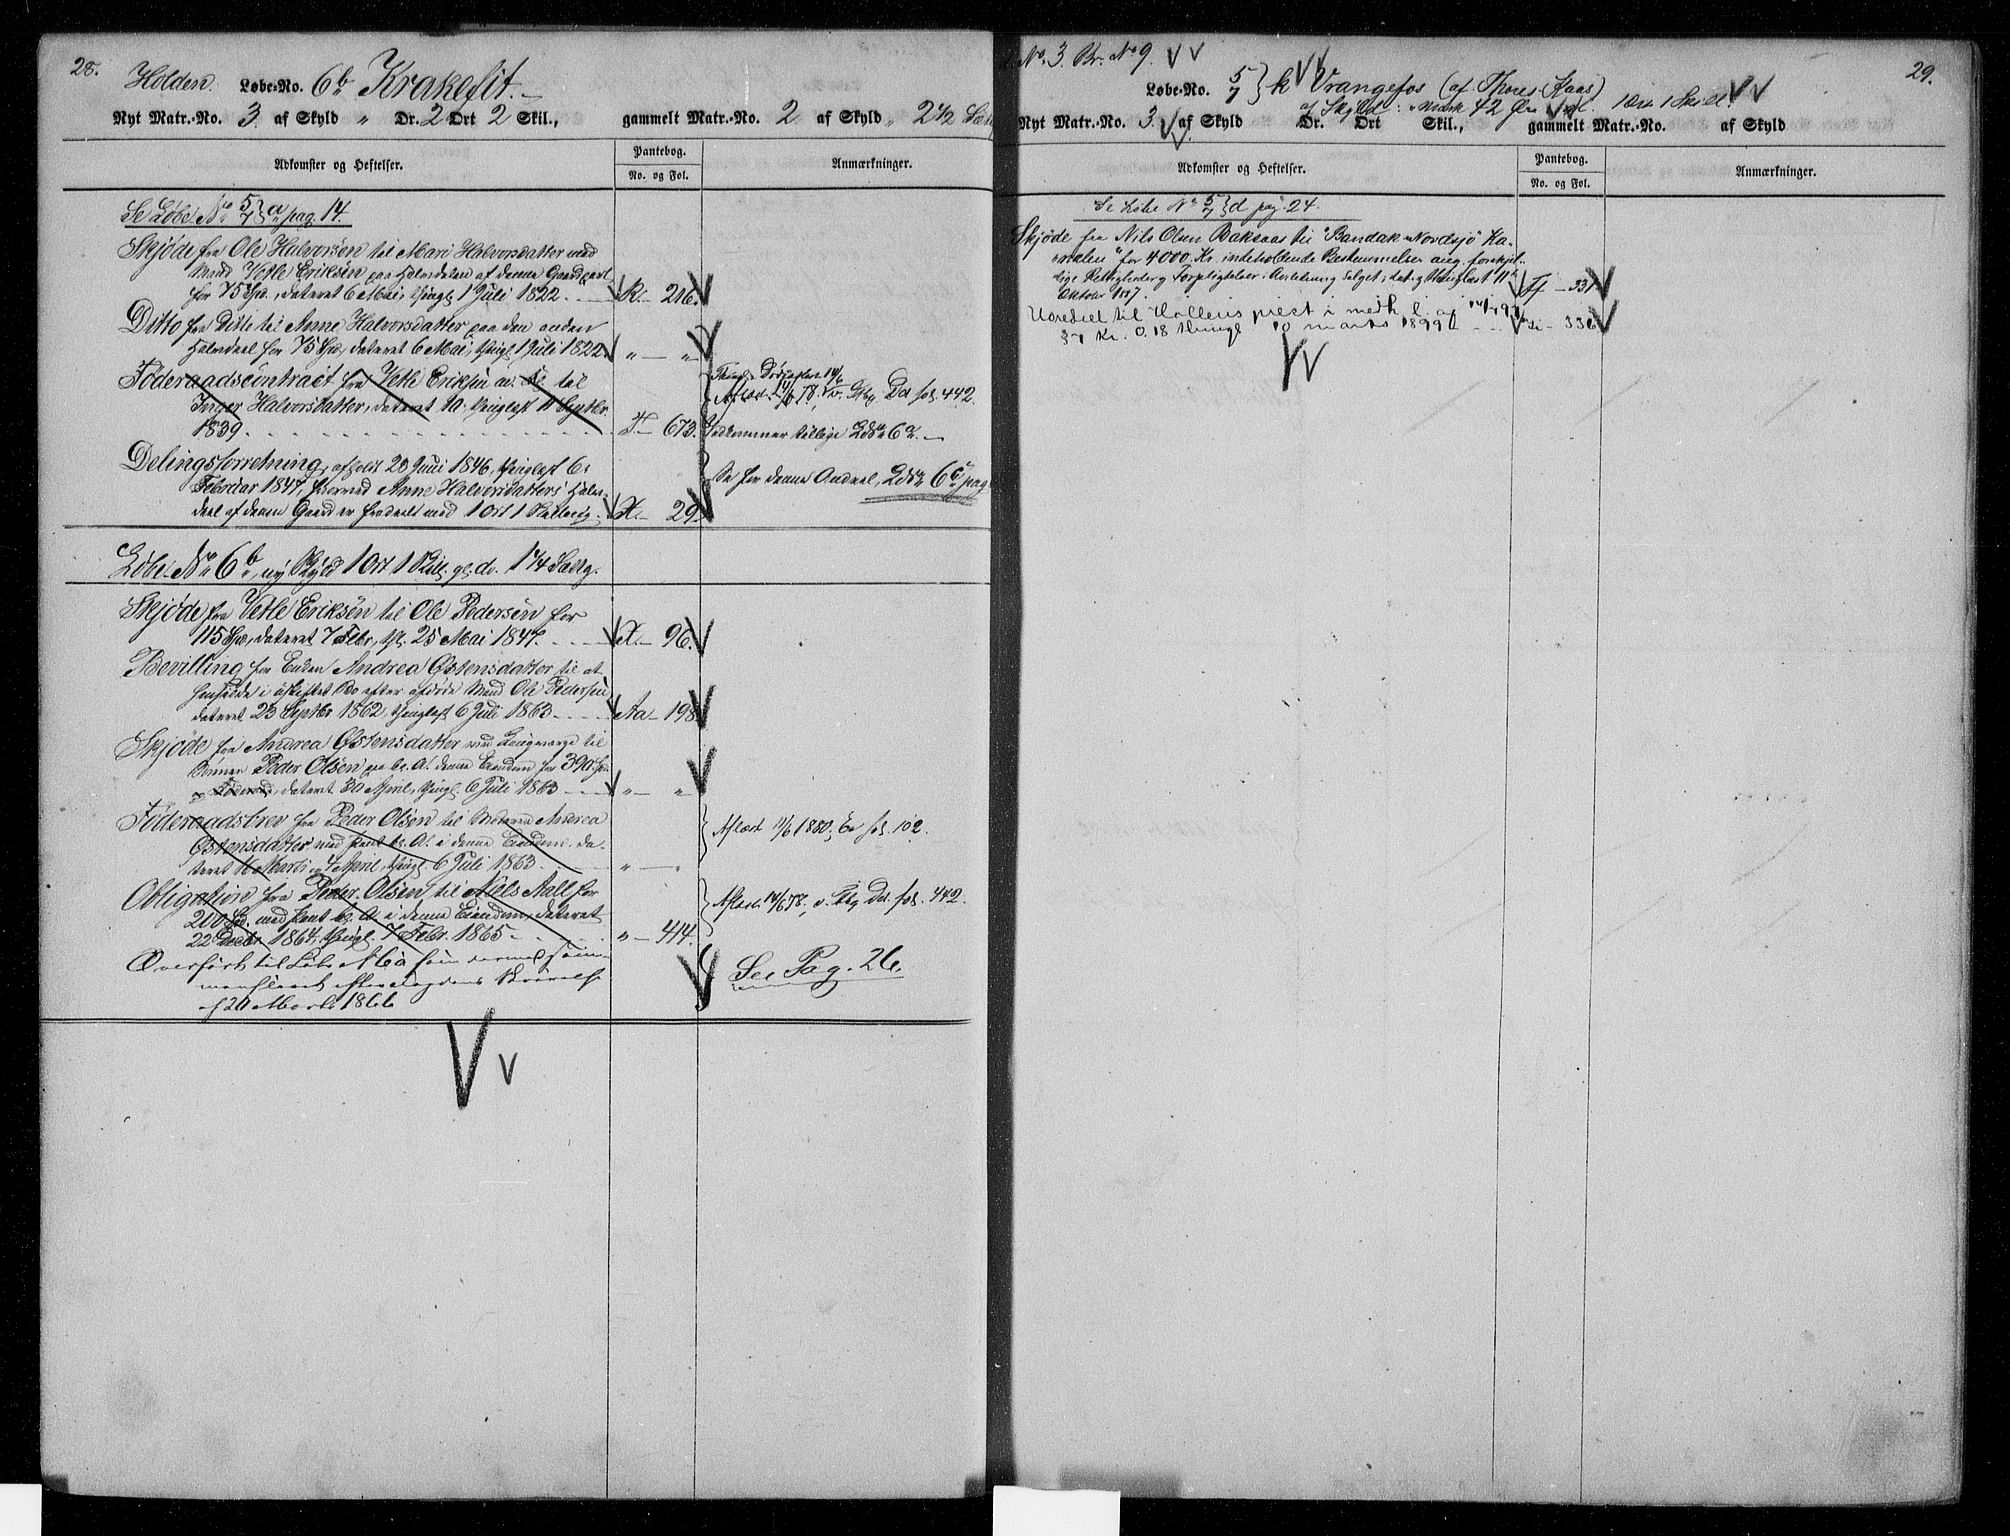 28.
Holden. Løbe-No. 6b Krakefit.
Nyt Matr.-No. 3 af Skyld " Dr. 2 Ort 2 Skil., gammelt Matr.-No. 2 af Skyld " 2 1/2
Adkomster og Heftelser.
Pantebog.
No. og Fol.
Anmærkninger.
Se Løbe No 5/7 } a pag. 14.
Skjøde fra Ole Halvorsen til Mari Halvorsdatter med
Mand Vetle Eriksøn paa Halvdelen af denne Gaardpart
for 75 Spd., dateret 6 Mai, thingl. 1 Juli 1822. K. - 216.
Ditto fra Ditto til Anne Halvorsdatter paa den anden
Halvdeel for 75 Spd, dateret 6 Mai, thingl. 1 Juli 1822. " - "
Føderaadscontract fra Vetle Eriksøn til
Inger Halvorsdatter, dateret thinglæst 11 Septbr.
1839. T - 673.
Aflæst 14/6 78, Da fol. 442.
Vedkommer tillige LNo 6a.
Delingsforretning, afholdt 20 Juni 1846, thinglæst 6
Februar 1847, hvorved Anne Halvorsdatters Halv-
deel af denne Gaard er fradeelt med 1 Ort 1 Skilling. X. - 29.
Se for denne Andeel, LNo 6c pag
Løbe-No 6b, ny Skyld 1 Ort 1 Skill. gl. do. 1 1/4 Sætg.
Skjøde fra Vetle Eriksøn til Ole Pedersøn for
115 Spd, dateret 7 Febr, thgl. 25 Mai 1847. X. - 96.
Bevilling for Enken Andrea Østensdatter til at
hensidde i uskiftet Bo efter afdøde Mand Ole Pedersen,
dateret 23 Septbr 1862, thinglæst 6 Juli 1863 Aa - 198
Skjøde fra Andrea Østensdatter med Laugværge til
Sønnen Peder Olsen paa bl. A. denne Eiendom for 390 Spd
og Føderaad, dateret 30 April, thingl. 6 Juli 1863 " - "
Føderaadsbrev fra Peder Olsen til Moderen Andrea
Østensdatter med Pant bl. A. i denne Eiendom, da-
teret 16 Marts, 4 April, thingl. 6 Juli 1863. " - "
Aflæst 11/6 1880, Ea fol. 102.
Obligation fra Peder Olsen til Niels Aall for
200 Spd. med Pant bl. A. i denne Eiendom, dateret
22 Decbr 1864, thingl. 7 Febr. 1865. " - 414.
Aflæst 14/6 78, Da fol. 442.
Overført til Løbe No 6a som dermed sam-
menføiet efter Skrivelse
af 20 Marts 1866
See Pag. 26.
29.
No. 3. Br. No 9.
Løbe-No. 5/7 } k Vrangefos (af Thores Kaas)
af Skyld: " Mark 42 Øre 1 Ort 1 Skill.
Nyt Matr.-No. 3. af Skyld Dr. Ort Skil., gammelt Matr.-No. af Skyld
Adkomster og Heftelser.
Pantebog.
No. og Fol.
Anmærkninger.
Se Løbe No 5/7 } d pag. 24.
Skjøde fra Nils Olsen Baksaas til "Bandak-Nordsjø Ka-
nalen" for 4000 Kr. indeholdende Bestemmelser ang. forskjel-
lige Rettigheder og Forpligtelser i Anledning Salget, dat. og thinglæst 11te
Oktober 1887.
Hollens prest i medh.
37 Kr. 0.18 thingl 10 marts 1899 - 336